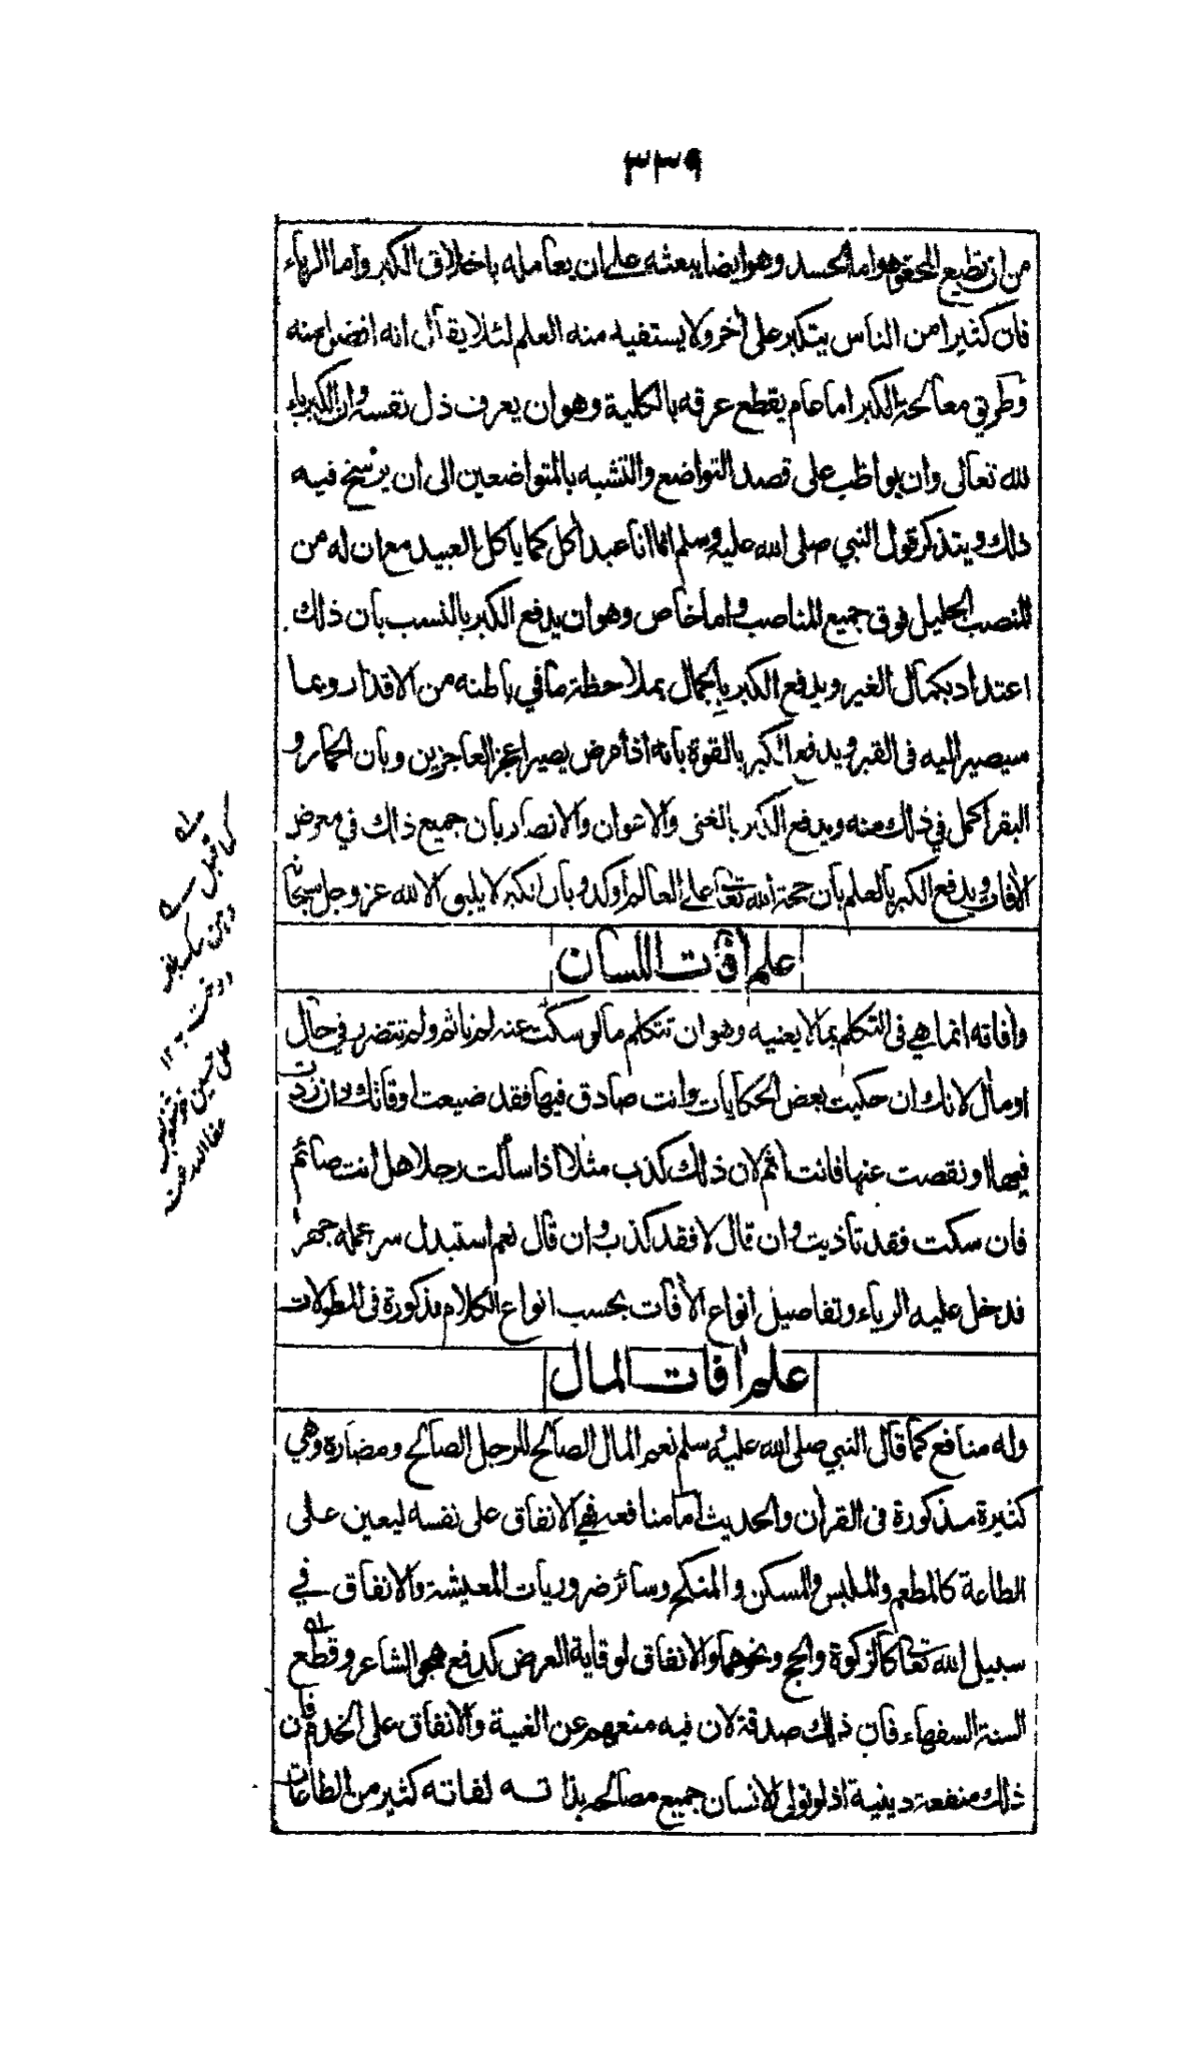 ٣٣٩
من ان تطيع المحقو هو اما الحسد وهو ايضا يبعثه على ان يعامله باخلاق الكبر واما الرياء
فان كثيرا من الناس يتكبر على أخر ولا يستفيد منه العلم لئلا يقال انه افضل منه
وطريق معالجة الكبر اما عام يقطع عرقه بالكلية وهو ان يعرف ذل نفسه وان الكبرياء
لله تعالى وان يواظب على قصد التواضع والتشبه بالمتواضعين الى ان يرسخ فيه
ذلك ويتذكر قول النبي صلى الله عليه وسلم انما انا عبد أكل كما يأكل العبيد مع ان له من
المنصب الجليل فوق جميع المناصب واما خاص وهو ان يدفع الكبر بالنسب بان ذلك
اعتداد بكمال الغير ويدفع الكبر بالجمال بملاحظة ما في باطنه من الاقذار وبما
سيصير اليه فى القبر ويدفع الكبر بالقوة بانه اذا مرض يصير اعجز العاجزين وبان الحمار و
البقر أكمل في ذلك منه ويدفع الكبر بالغنى والاعوان والانصار بان جميع ذلك في معرض
الأفات ويدفع الكبر بالعلم بان حجة الله تعالى على العالم اوكد وبان انكبر لا يليق الا لله عز وجل سبحانه
علم أفات اللسان
وأفاته انما هي فى التكلم بما لا يعنيه وهو ان تتكلم ما لو سكت عنه لم تاثم ولم تتضرر في حال
او مأل لانك ان حكيت بعض الحكايات وانت صادق فيها فقد ضيعت اوقاتك وان زدت
فيها او نقصت عنها فانت اثم لان ذلك كذب مثلا اذا سألت رجلا هل انت صائم
فان سكت فقد تاذيت وان قال لا فقد كذب وان قال نعم استبدل سر عمله جهرا
فدخل عليه الرياء وتفاصيل انواع الأفات بحسب انواع الكلام مذكورة فى المطولات
علم أفات المال
وله منافع كما قال النبي صلى الله عليه وسلم نعم المال الصالح للرجل الصالح ومضاره وهي
كثيرة مذكورة فى القرأن والحديث اما منافعه فهي الانفاق على نفسه ليعين على
الطاعة كالمطعم والملبس والمسكن والمنكح وسائر ضروريات المعيشة والانفاق في
سبيل الله تعالى كالزكوة والحج ونحوهما والانفاق لوقاية العرض كدفع هجو الشاعر وقطع
السنة السفهاء فان ذلك صدقة لان فيه منعهم عن الغيبة والانفاق على الخدم فان
ذلك منفعة دينية اذ لو تولى الانسان جميع مصالحه بذاته لفاته كثير من الطاعات
عفا الله عنه